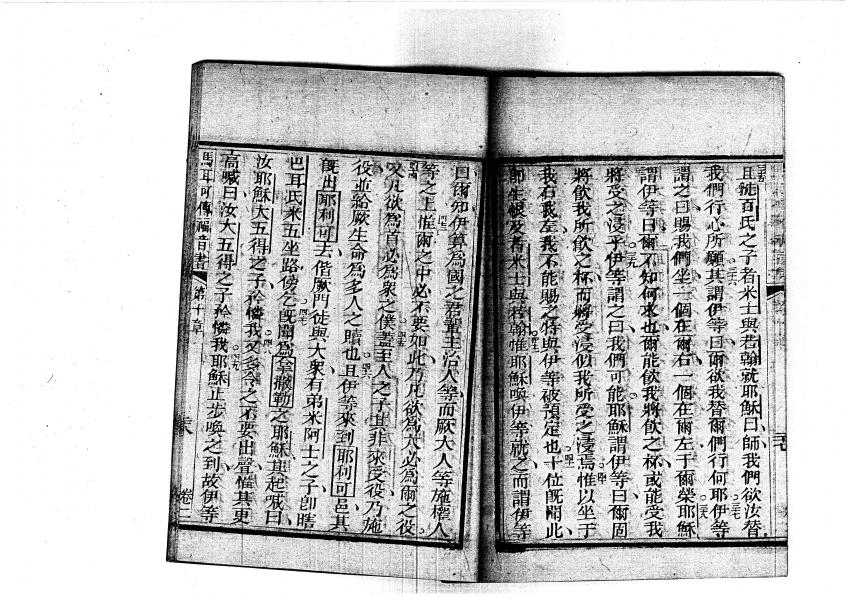 且徒百氏之子若米士與若翰就耶穌曰師我們欲汝替
我們行心所願其謂伊等曰爾欲我替爾們行何耶伊等
謂之曰賜我們坐一個在爾右一個在爾左于爾榮耶穌
謂伊等曰爾不知何求也爾能飲我將飲之杯或能受我
將受之浸乎伊等謂之曰我們可能耶穌謂伊等曰爾固
將飲我所飲之杯而將受浸似我所受之浸焉惟以坐于
我右我左我不能賜之特與伊等被預定也十位既聞此
即生恨及若米士與若翰惟耶穌喚伊等就之而謂伊等
曰爾知伊算為國之君置主治人等而厥大人等施權人
等之上惟爾之中必不要如此乃凡欲為大必為爾之役
又凡欲為首必為眾之僕蓋主人之子且非來受役乃施
役並給厥生命為多人之贖也且伊等來到耶利可邑其
既出耶利可去偕厥門徒與大眾有弟米阿士之子即瞎
巴耳氏米五坐路傍乞既聞為拿撒勒之耶穌其起喊曰
汝耶穌大五得之子矜憐我又多令之不要出聲惟其更
高喊曰汝大五得之子矜憐我耶穌止步喚之到故伊等
馬耳可傳福音書 第十章 卷二